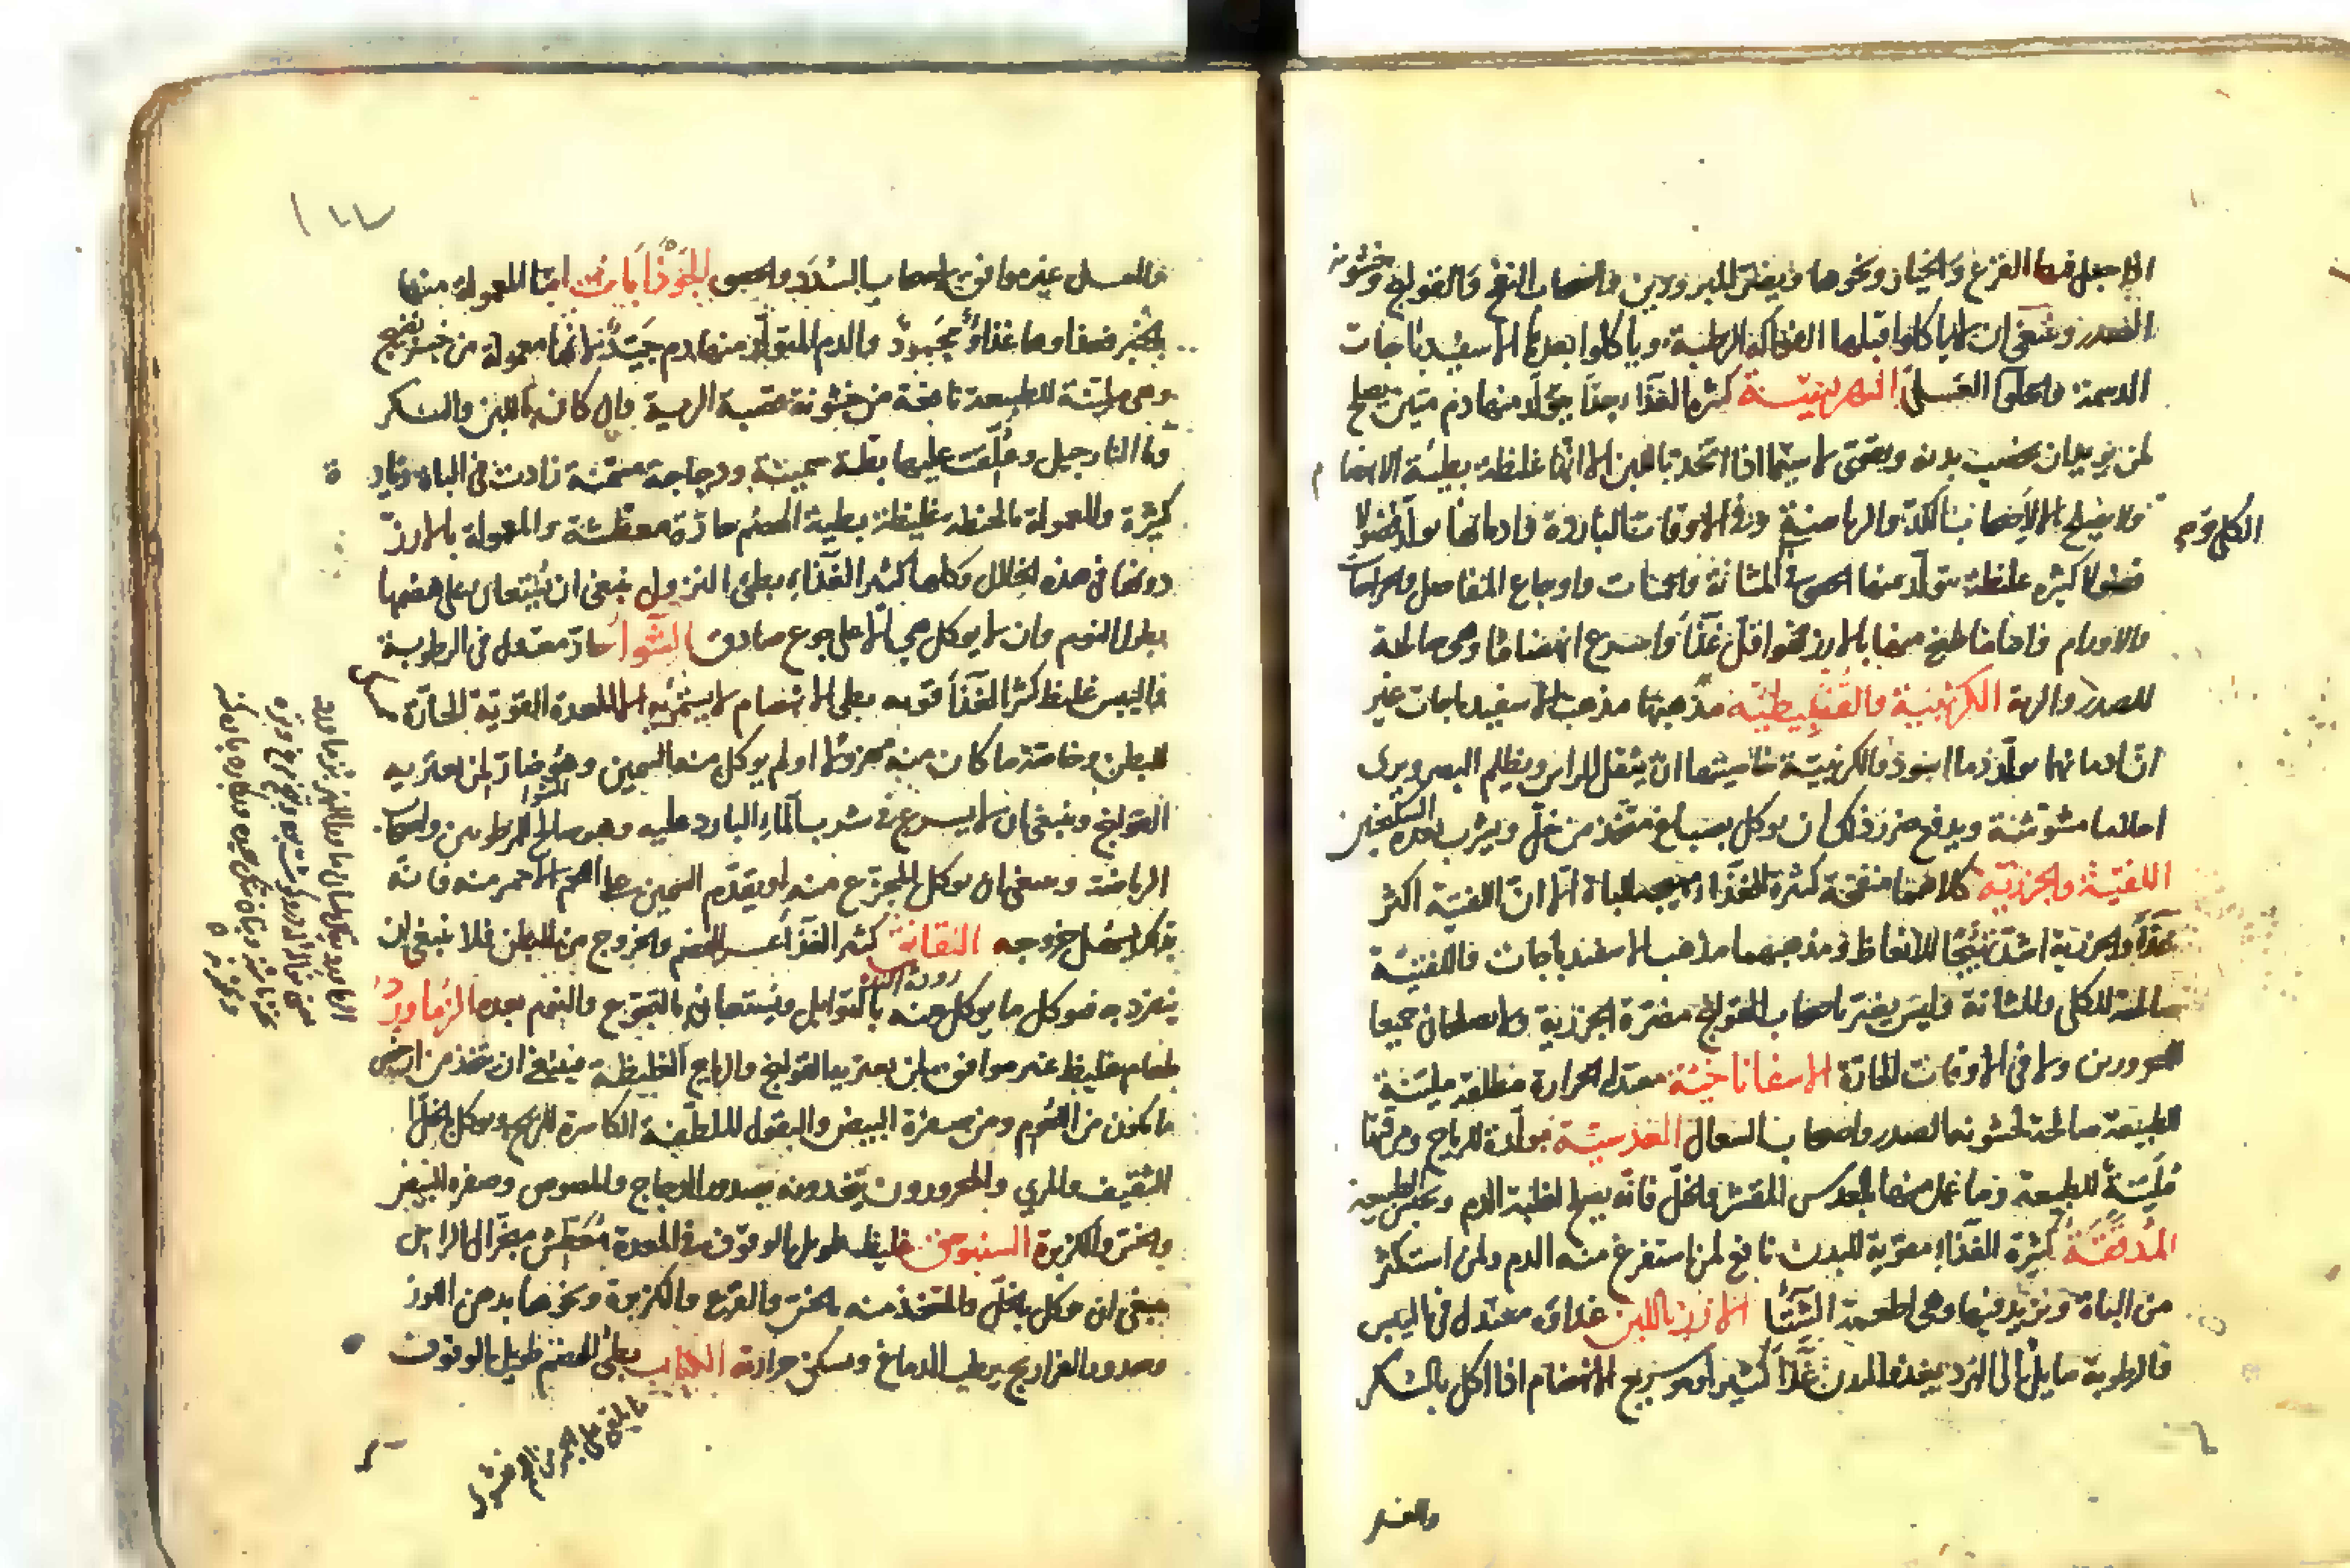 الا جعل فيها القرع والخيار ونحوها ويضر المبرودين واصحاب النفخ والقولنج وخشونة
الصدر وينبغي ان لا ياكلوا قبلها الفواكه الرطبة وياكلوا بعدها الاسفيدباجات
الدسمة والحلوا العسلى الهريسة كثيرة الغذا جدا يتولد منها دم متين يصلح
لمن يريد ان يخصب بدنه ويقوى لا سيما اذا اتخذ باللبن الا انها غليظة بطيئة الانهضام
ولا يصلح الا لاصحاب الكد والرياضة وفي الاوقات الباردة وادمانها يولد فضولا
الكلى وم
فضولا كثيرة غليظة يتولد عنها الحصى المثانة والحيات واوجاع المفاصل والجراحات
والاورام واما ما طبخ منها بالارز فهو اقل غذا واسرع انهضاما وهي صالحة
للصدر والرية الكرنبية والقنبيطية مذهبها مذهب الاسفيدباجات غير
ان ادمانها يولد دما اسود والكرنبية خاصيتها ان يثقل الراس ويظلم البصر ويرى
احلاما مشوشة ويدفع ضرر ذلك ان يوكل بصباغ متخذ من خل ويشرب بعده السكنجبين
اللفتية والجزرية كلاهما منفخة كثيرة الغذا مهيجة للباة الا ان اللفتية اكثر
غذا والجزرية اشد تهييجا للانعاظ ومذهبهما مذهب الاسفيدباجات واللفتية
صالحة للكلى والمثانة وليس يضر باصحاب القولنج مضرة الجزرية ولا يصلحان جميعا
للمحرورين ولا في الاوقات الحارة الاسفاناخية معتدل الحرارة مطلقة ملينة
للطبيعة صالحة لخشونة الصدر واصحاب السعال العدسية مولدة للرياح ومرقتها
ملينة للطبيعة وما عمل منها بالعدس المقشر والخل فانه يصلح لغلبة الدم وتحبس الطبيعة
المدققة كثيرة الغذاء مقوية للبدن نافع لمن استفرغ منه الدم ولمن استكثر
من الباة وتزيد فيها وهي اطعمة الشتا الارز باللبن غذاؤه معتدل في اليبس
والرطوبة مايل الى البرد يغذو البدن غذا كثيرا وهو سريع الانهضام اذا اكل بالسكر
والعسل
١٢٧
والعسل غير موافق لاصحاب السدد والحصى الجوذابات اما المعمولة منها
بالخبز فصفاوها غذاؤ محمود والدم المتولد منها دم جيد لانها معمولة من خبز نضيج
وهي ملينة للطبيعة نافعة من خشونة قصبة الرية وان كانت باللبن والسكر
وما النارجيل وعلقت عليها بطة سمينة ودجاجة مسمنة زادت في الباه زيادة
كثيرة والمعمولة بالحنطة غليظة بطية الهضم حارة معطشة والمعمولة بالارز
دونها في هذه الخلال وكلها كثير الغذاء بطى النزول ينبغي ان يستعان على هضمها
بطول النوم وان لا يوكل حي الا على جوع صادق الشوا حار معتدل في الرطوبة
واليبس غليظ كثير الغذا قويه بطى الانهضام لا يستمريه الا المعدة القوية الحارة
للبطن وخاصة ما كان منه مجزوعا او لم يوكل منه السمين وهو ضار لمن يعتريه
القولنج وينبغي ان لا يسرع في شرب الماء البارد عليه وهو صالح للمرطوبين واصحاب
الرياضة وينبغي ان يوكل المجزع منه او يقدم السمين على اللحم الاحمر منه فانه
بذلك يسهل خروجه النقانق كثير الغذا عسر الهضم والخروج من البطن فلا ينبغي ان
ينفرد به فيوكل ما يوكل منه بالتوابل ويستعان بالتجوع والنوم بعده الزماورد
طعام غليظ غير موافق لمن يعتريه القولنج والرياح الغليظة فينبغي ان يتخذ من ارخص
ما يكون من اللحوم ومن صفرة البيض والبقول الملطفة الكاسرة للريح ويوكل بخل
الثقيف والمري والمحرورون يتخذونه بصدور الدجاج والمصوص وصفرة البيض
والخس والكزبرة السنبوسق غليظ طويل الوقوف في المعدة معطش مبخر الى الراس
ينبغي ان يوكل بالخل والمتخذ منه بالخس والقرع والكزبرة ونحوها بدهن اللوز
وصدور الفراريج يرطب الدماغ ويسكن حرارته الكباب بطى الهضم طويل الوقوف